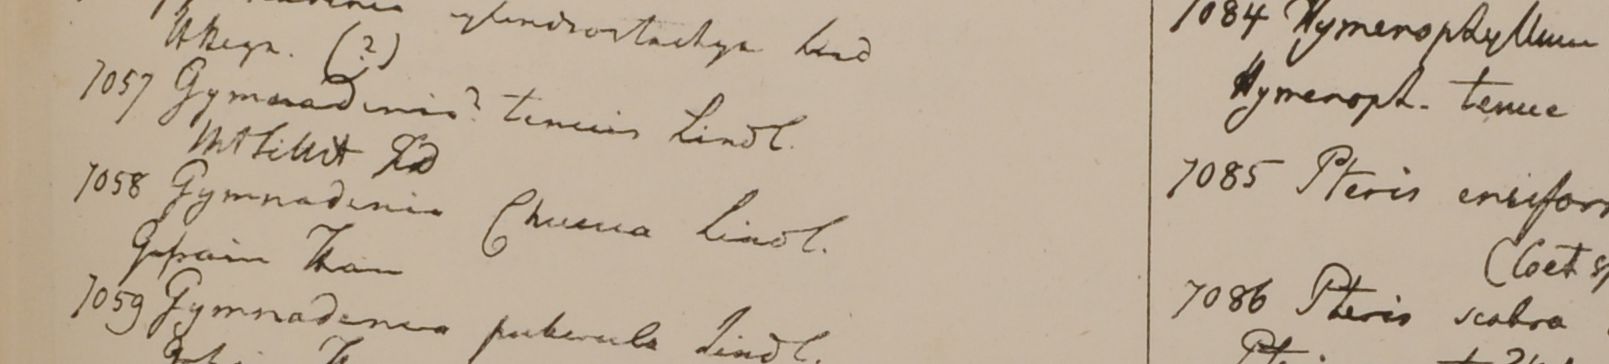 cylindrostachya Lind
(?)
7057 Gymnadenia? tenuis Lindl.
7058 Gymnadenia Chusua Lindl.
Gossain Than
7059 Gymnadenia puberula Lindl.
7084 Hymenophyllum
Hymenoph. tenue
7085 Pteris ensiform
7086 Pteris scabra